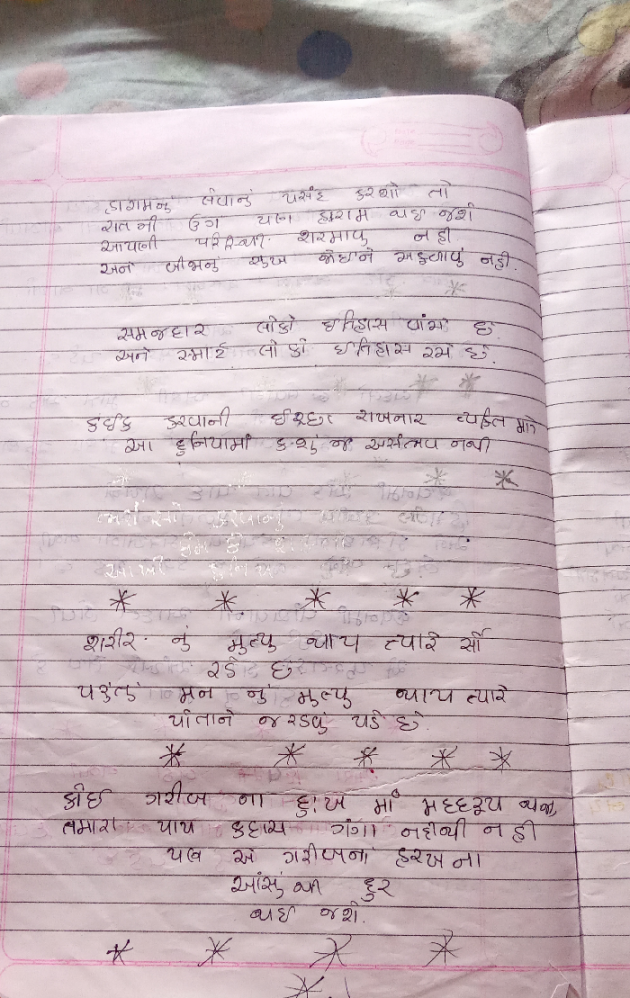 હારામનું લેવાનું પસંદ કરશો તો
રાતની ઉંગ પણ હારામ થઇ જશે
આપની પરિસ્થિતી શરમાવુ નહી
અને બીજાનું સુખ જોઇને અકળાવું નહી.
સમજદાર લોકો ઈતિહાસ વાંચે છે
અને સ્માર્ટ લોકો ઈતિહાસ રચે છે.
કઈક કરવાની ઈચ્છા રાખનાર વ્યકિત માટે
આ દુનિયામાં કશું જ અસંભવ નથી
શરીર નું મુત્યુ થાય ત્યારે સૌ
રડે છે
પરંતું મન નું મુત્યુ થાય ત્યારે
પોતાને જ રડવું પડે છે.
કોઈ ગરીબ ના દુઃખ માં મદદરૂપ થજો,
તમારા પાપ કદાચ ગંગા નદીથી નહી
પણ એ ગરીબના હરખ ના
આંસું થી દુર
થઈ જશે.